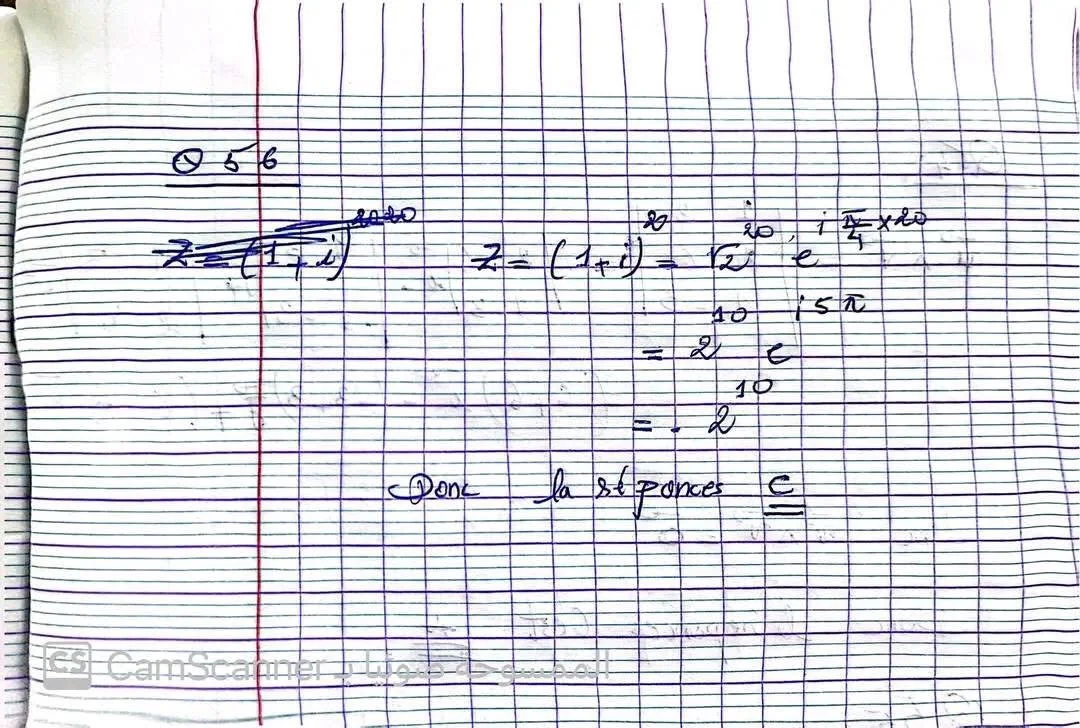 Q 56
Z = (1+i)^2020
Z = (1+i)^20 = √2^20 . e^(i π/4 × 20)
= 2^10 e^(i5π)
= - 2^10
Donc la réponces C
CS CamScanner الممسوحة ضوئيا بـ